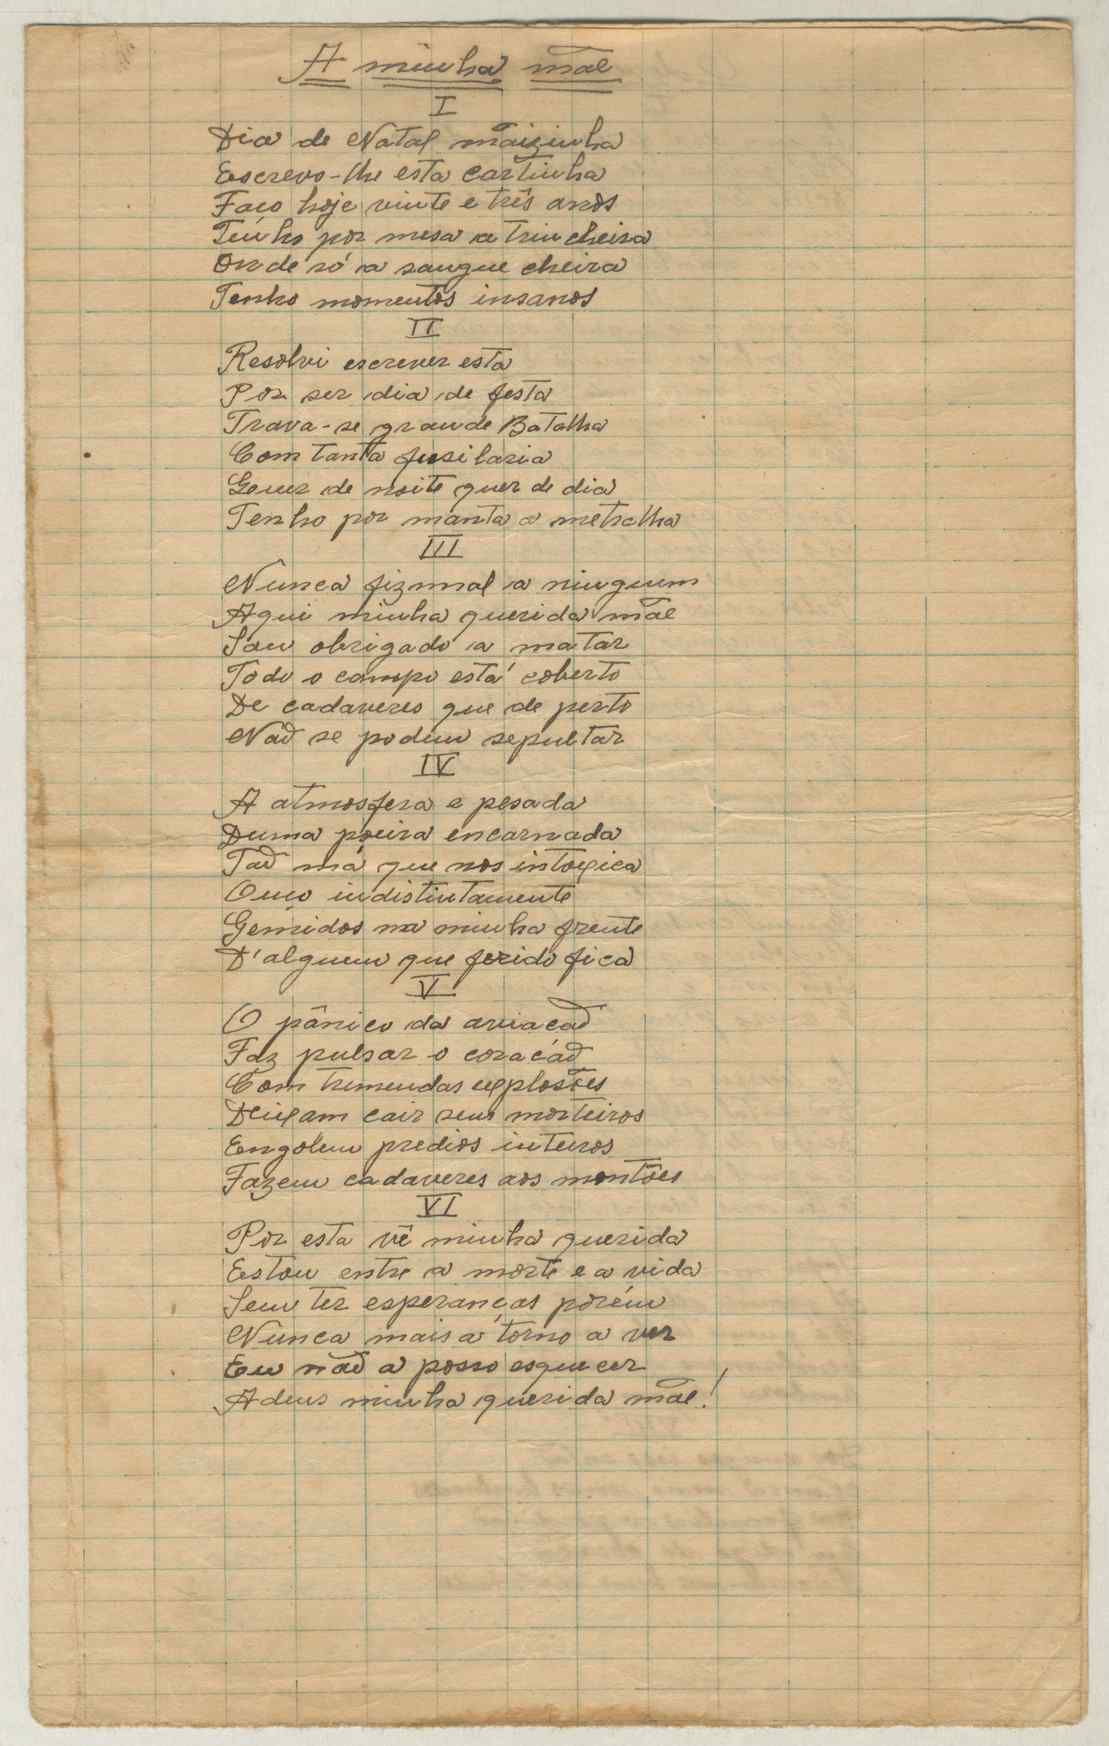 A minha mãe
I
Dia de Natal mãizinha
Escrevo-lhe esta cartinha
Faço hoje vinte e três anos
Tenho por mesa a trincheira
Onde só a sangue cheira
Tenho momentos insanos
II
Resolvi escrever esta
Por ser dia de festa
Trava-se grande Batalha
Com tanta fusilaria
Quer de noite quer de dia
Tenho por manta a metralha
III
Nunca fiz mal a ninguem
Aqui minha querida mãe
Sou obrigado a matar
Todo o campo está coberto
De cadaveres que de perto
Não se podem sepultar
IV
A atmosfera e pesada
Duma poeira encarnada
Tão má que nos intoxica
Ouço indistintamente
Gemidos na minha frente
D'alguem que ferido fica
V
O pânico da aviacão
Faz pulsar o coração
Com tremendas explosões
Deixam cair seus morteiros
Engolem predios inteiros
Fazem cadaveres aos montões
VI
Por esta vê minha querida
Estou entre a morte e a vida
Sem ter esperanças porém
Nunca mais a torno a ver
Eu não a posso esquecer
Adeus minha querida mãe!